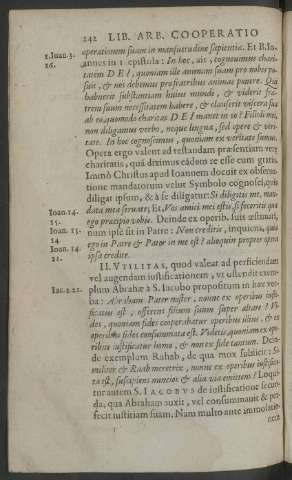 242 LIB. ARB. COOPERATIO
1. Ioan. 3.
16.
operationem suam in mansuetudine sapientiæ. Et B. Io-
annes in 1. epistola: In hoc, ait, cognouimus chari-
tatem DEI, quoniam ille animam suam pro nobis po-
suit, & nos debemus pro fratribus animas ponere. Qui
habuerit substantiam huius mundi, & viderit fra-
trem suum necessitatem habere, & clauserit viscera sua
ab eo, quomodo charitas DEI manet in eo? Filioli mei,
non diligamus verbo, neque lingua, sed opere & veri-
tate. In hoc cognoscimus, quoniam ex veritate sumus.
Opera ergo valent ad testandam præsentiam veræ
charitatis, quâ diximus eâdem re esse cum gratia.
Immò Christus apud Ioannem docuit ex obserua-
tione mandatorum velut Symbolo cognosci, quis
diligat ipsum, & à se diligatur: Si diligitis me, man-
data mea seruate; Et, Vos amici mei estis, si feceritis quæ
Ioan. 14.
15.
Ioan. 15.
14
Ioan. 14.
21.
ego præcipio vobis. Deinde ex operib. suis æstimari,
num ipse sit in Patre: Non creditis, inquiens, quia
ego in Patre & Pater in me est? alioquin propter opera
ipsa credite.
II. VTILITAS, quod valeat ad perficiendam
vel augendam iustificationem, vt ostendit exem-
plum Abrahæ à S. Iacobo propositum in hæc ver-
Iac. 2. 21.
ba: Abraham Pater noster, nonne ex operibus iusti-
ficatus est, offerens filium suum super altare? Vi-
des, quoniam fides cooperabatur operibus illius, & ex
operibus fides consummata est. Videtis, quoniam ex ope-
ribus iustificatur homo, & non ex fide tantum. Dein-
de exemplum Rahab, de qua mox subiicit: Si-
militer & Raab meretrix, nonne ex operibus iustifica-
ta est, suscipiens nuncios & alia via emittens? Loqui-
tur autem S. IACOBVS de iustificatione secun-
da, qua Abraham auxit, vel consummauit & per-
fecit iustitiam suam. Nam multo ante immolatio-
nem